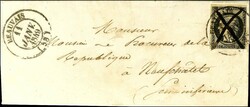 BEAUVAIS
11
JANV.
1850
(58)
Monsieur
Monsieur le Procureur de la
République
à Neufchâtel